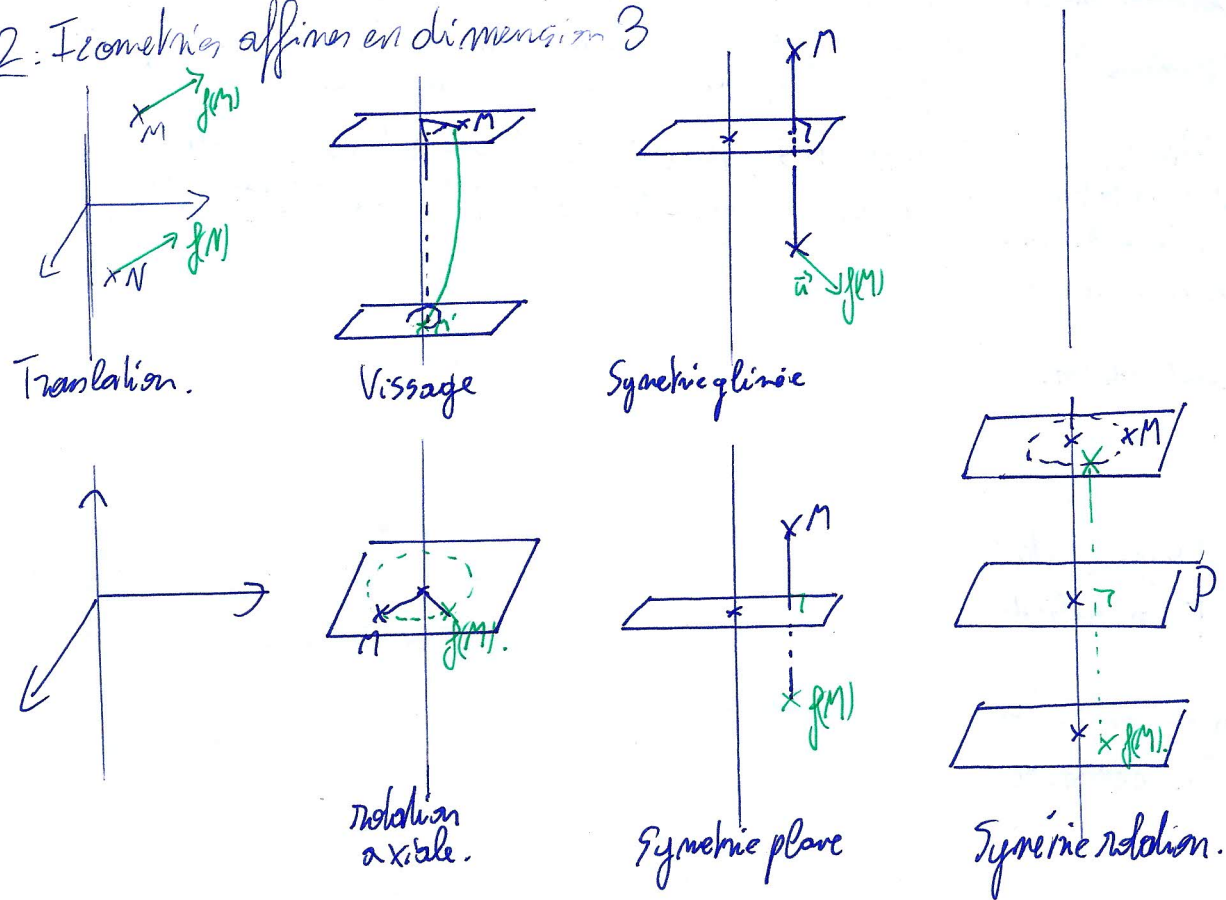 2: Isometries affines en dimension 3
M
f(M)
N
f(N)
Translation.
M
M'
Vissage
M
u
f(M)
Symetrie glissée
M
f(M).
rotation
axiale.
M
f(M)
Symetrie plane
M
P
f(M).
Symétrie rotation.